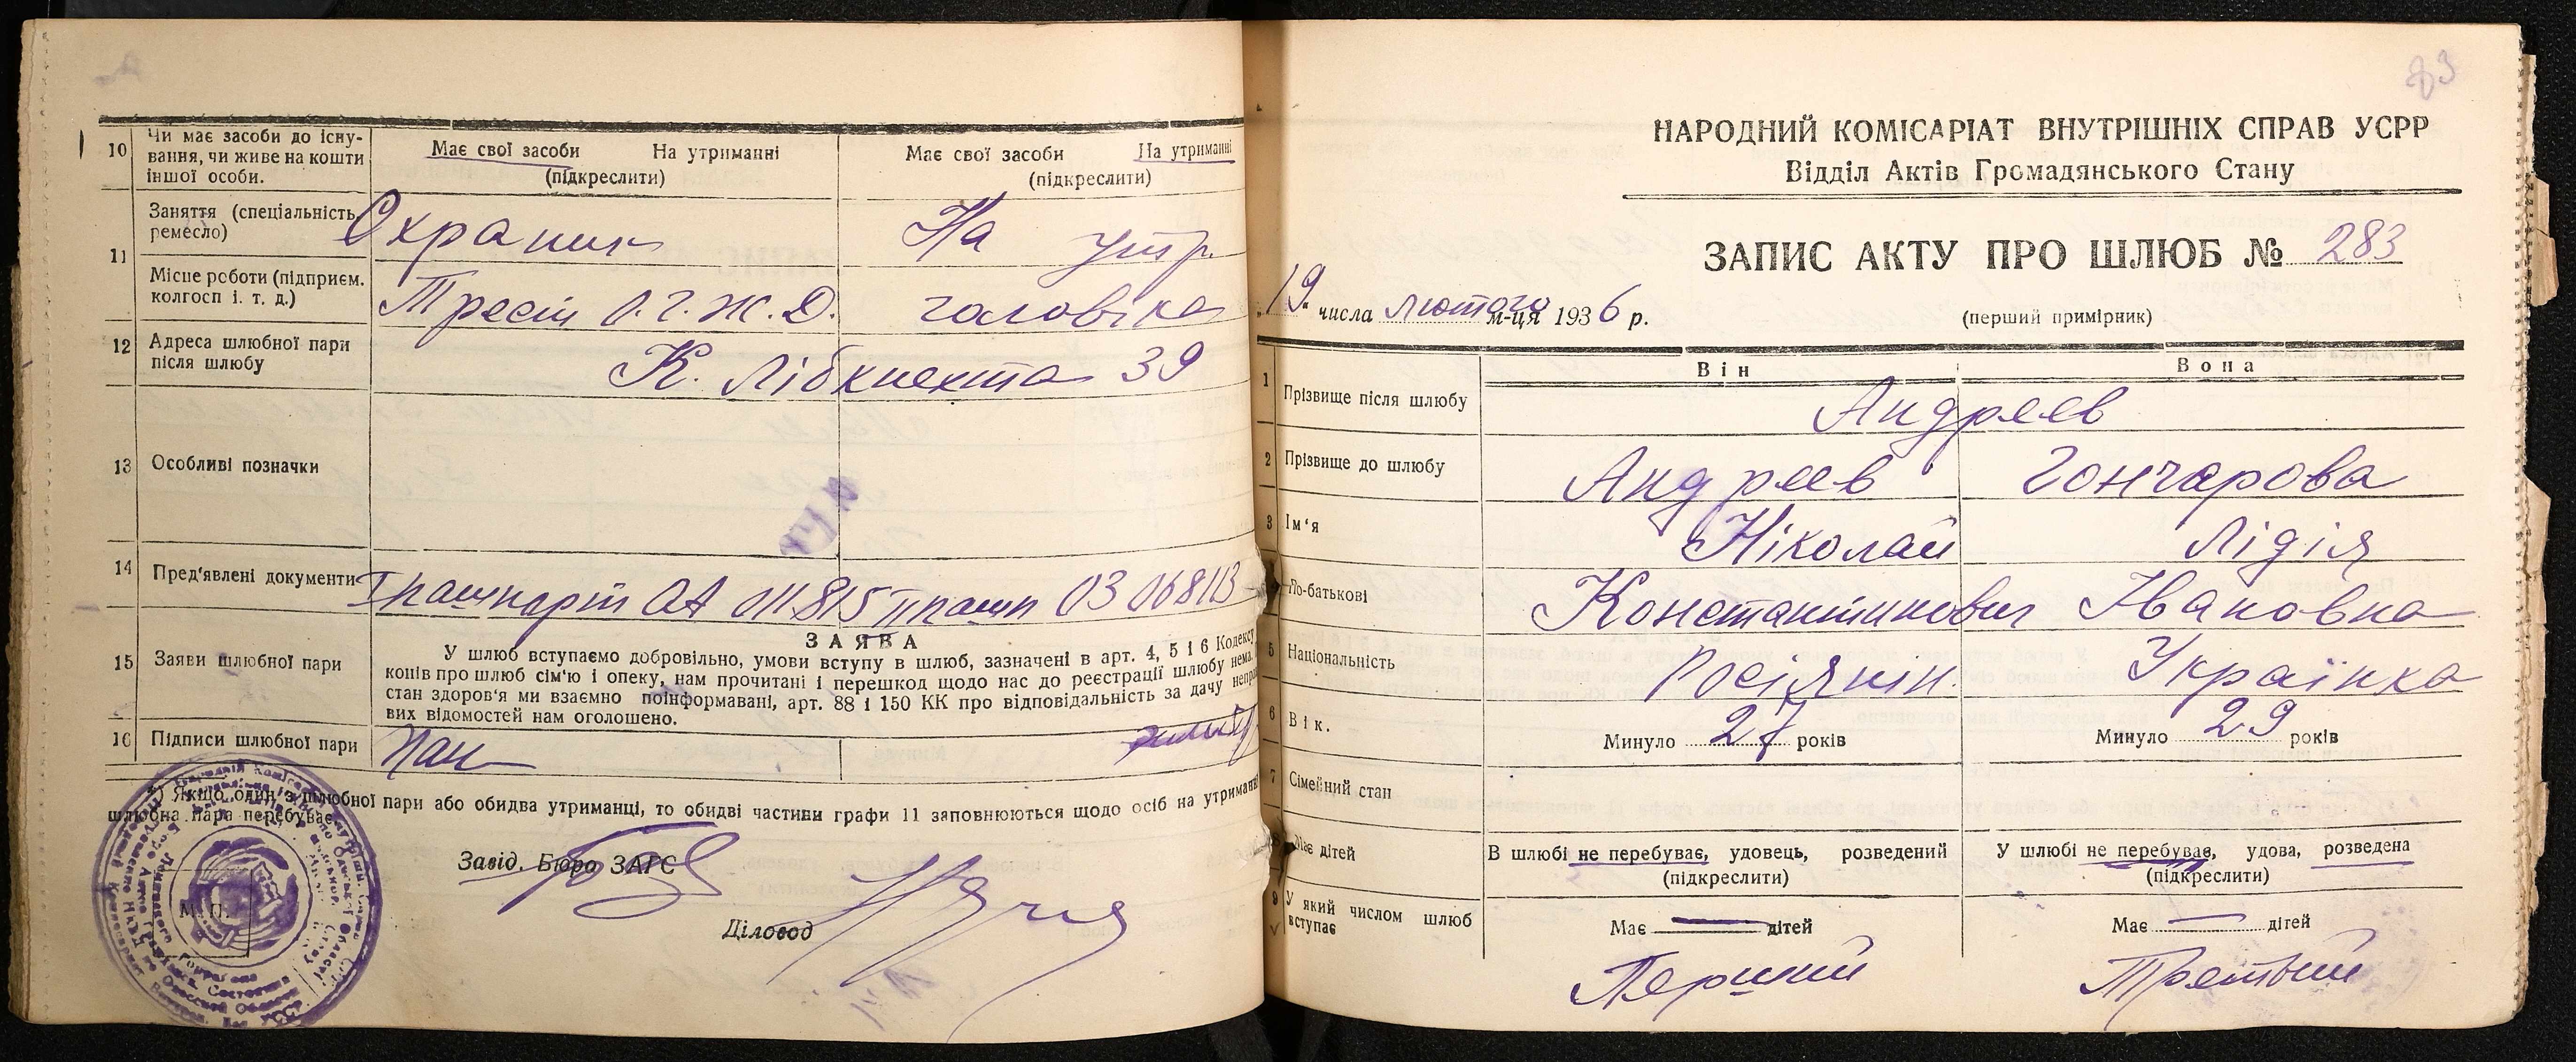 10 Чи має засоби до існу-
вання, чи живе на кошти
іншої особи.
Має свої засоби На утриманні
(підкреслити)
Має свої засоби На утриманні
(підкреслити)
11 Заняття (спеціальність
ремесло)
Охраник
На утр.
Місце роботи (підприєм.
колгосп і. т. д.)
Трест
чоловіка
12 Адреса шлюбної пари
після шлюбу
К. Лібкнехта 39
13 Особливі позначки
14 Пред'явлені документи
Пашпорт ОА 011815 пашп 03 068113
15 Заяви шлюбної пари
ЗАЯВА
У шлюб вступаємо добровільно, умови вступу в шлюб, зазначені в арт. 4, 5 і 6 Кодексу
конів про шлюб сім'ю і опеку, нам прочитані і перешкод щодо нас до реєстрації шлюбу нема.
стан здоров'я ми взаємно поінформавані, арт. 88 і 150 КК про відповідальність за дачу неправ
вих відомостей нам оголошено.
16 Підписи шлюбної пари
*) Якщо один з шлюбної пари або обидва утриманці, то обидві частини графи 11 заповнюються щодо осіб на утриманні
шлюбна пара перебуває.
Завід. Бюро ЗАГС
М. П.
Діловод
83
НАРОДНИЙ КОМІСАРІАТ ВНУТРІШНІХ СПРАВ УСРР
Відділ Актів Громадянського Стану
ЗАПИС АКТУ ПРО ШЛЮБ № 283
19 числа лютого м-ця 1936 р.
(перший примірник)
Він Вона
1 Прізвище після шлюбу Андреев
2 Прізвище до шлюбу Андреев Гончарова
3 Ім'я Ніколай Лідія
По-батькові Константинович Івановна
5 Національність Росіянін. Українка
6 Вік. Минуло 27 років Минуло 29 років
7 Сімейний стан
В шлюбі не перебуває, удовець, розведений
(підкреслити)
У шлюбі не перебуває, удова, розведена
(підкреслити)
8 Має дітей
Має дітей Має дітей
9 У який числом шлюб
вступає
Перший Третьий